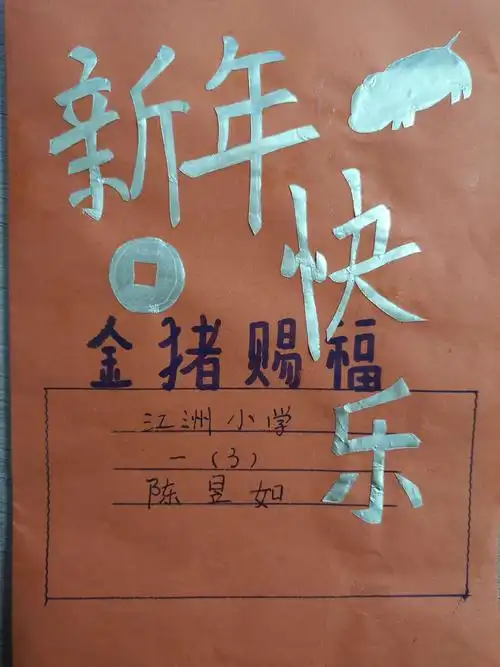 新年快乐
金猪赐福
江洲小学
一(3)
陈昱如